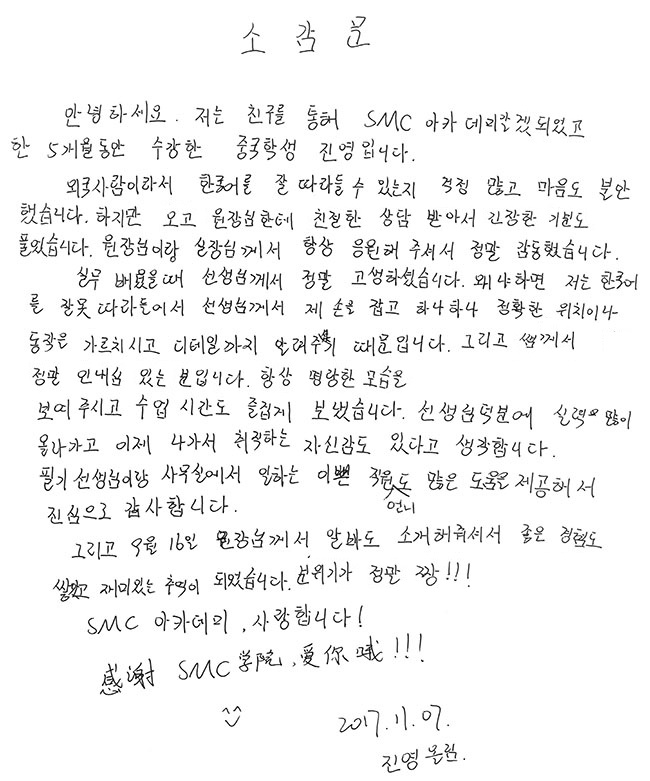 소감문
안녕하세요. 저는 친구를 통해 SMC 아카데미랄겠되었고
한 5개월동안 수강한 중국학생 진영입니다.
외국사람이라서 한국어를 잘 따라들 수 있는지 걱정 많고 마음도 불안
했습니다. 하지만 오고 원장님한테 친절한 상담 받아서 긴장한 기분도
풀었습니다. 원장님이랑 실장님께서 항상 응원해 주셔서 정말 감동했습니다.
실무 배웠을때 선생님께서 정말 고생하셨습니다. 왜냐하면 저는 한국어
를 잘못 따라들어서 선생님께서 제 손을 잡고 하나하나 정확한 위치이나
동작은 가르치시고 디테일까지 알려주셨기 때문입니다. 그리고 쌤께서
정말 인내심 있는 분입니다. 항상 명랑한 모습을
보여 주시고 수업 시간도 즐겁게 보냈습니다. 선생님덕분에 실력을 많이
올라가고 이제 나가서 취직하는 자신감도 있다고 생각합니다.
필기선생님이랑 사무실에서 일하는 이쁜 직원 언니도 많은 도움을 제공해서
진심으로 감사합니다.
그리고 9월 16일 원장님께서 알바도 소개해주셔서 좋은 경험도
쌓았고 재미있는 추억이 되었습니다. 분위기가 정말 짱!!!
SMC 아카데미, 사랑합니다!
感谢 SMC 学院, 爱你哦!!!
^^
2017.11.07.
진영 올림.